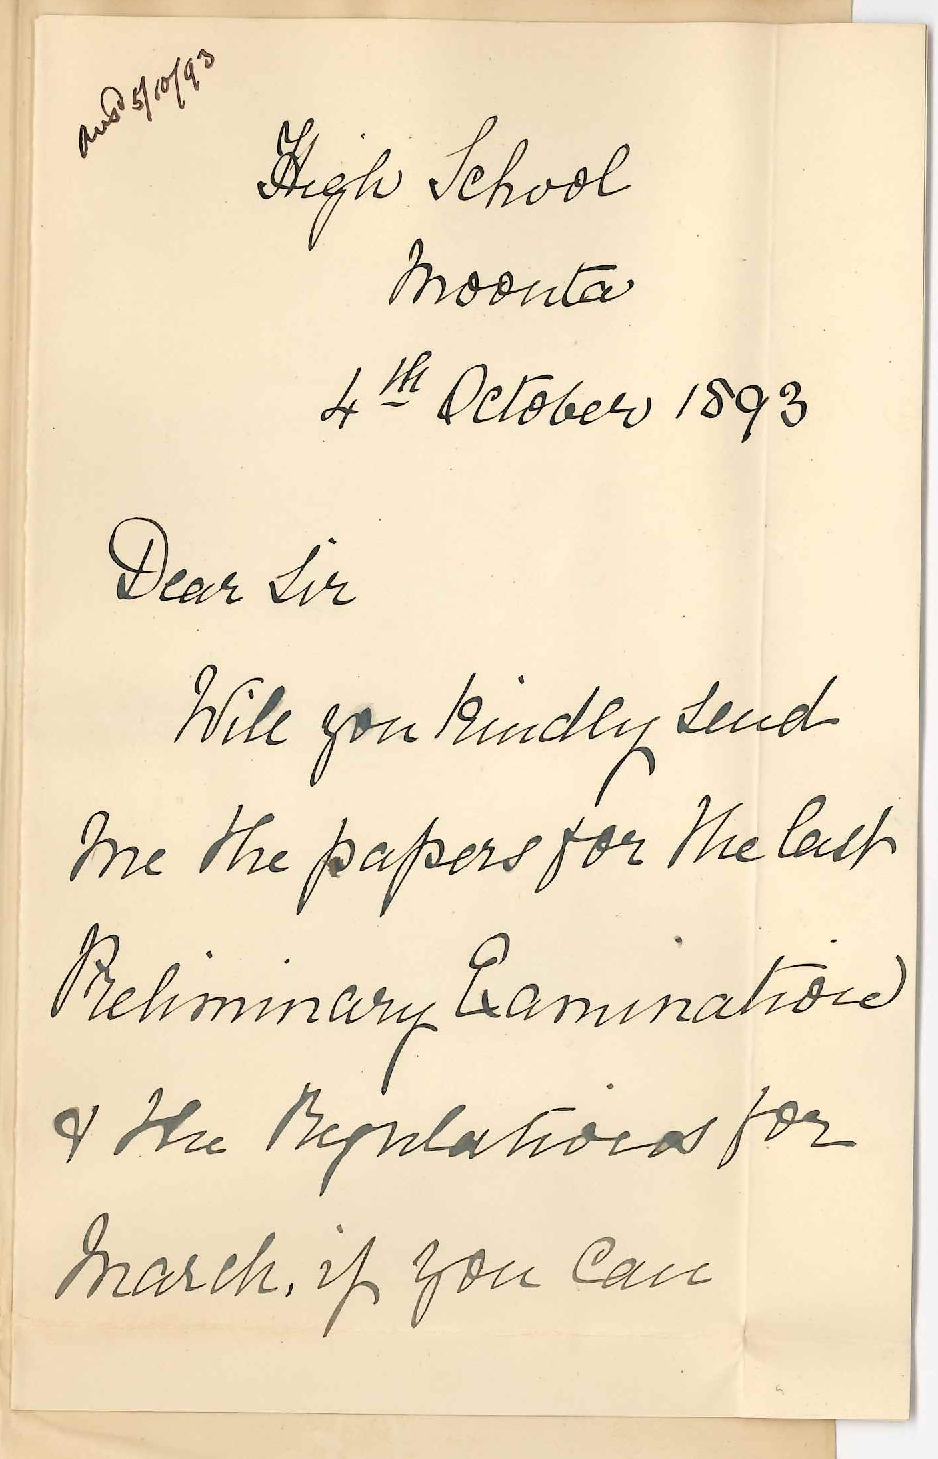 ansd 5/10/93
High School
Moonta
4th October 1893
Dear Sir
Will you kindly send
me the papers for the last
Preliminary Examination
& the Regulations for
March, if you can